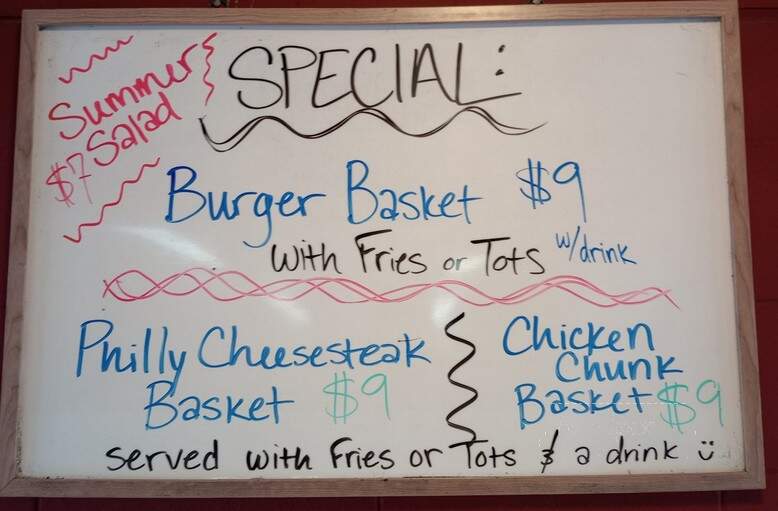 Summer
$7 Salad
SPECIAL:
Burger Basket $9
with Fries or Tots w/drink
Philly Cheesesteak
Basket $9
Chicken
Chunk
Basket $9
served with Fries or Tots & a drink